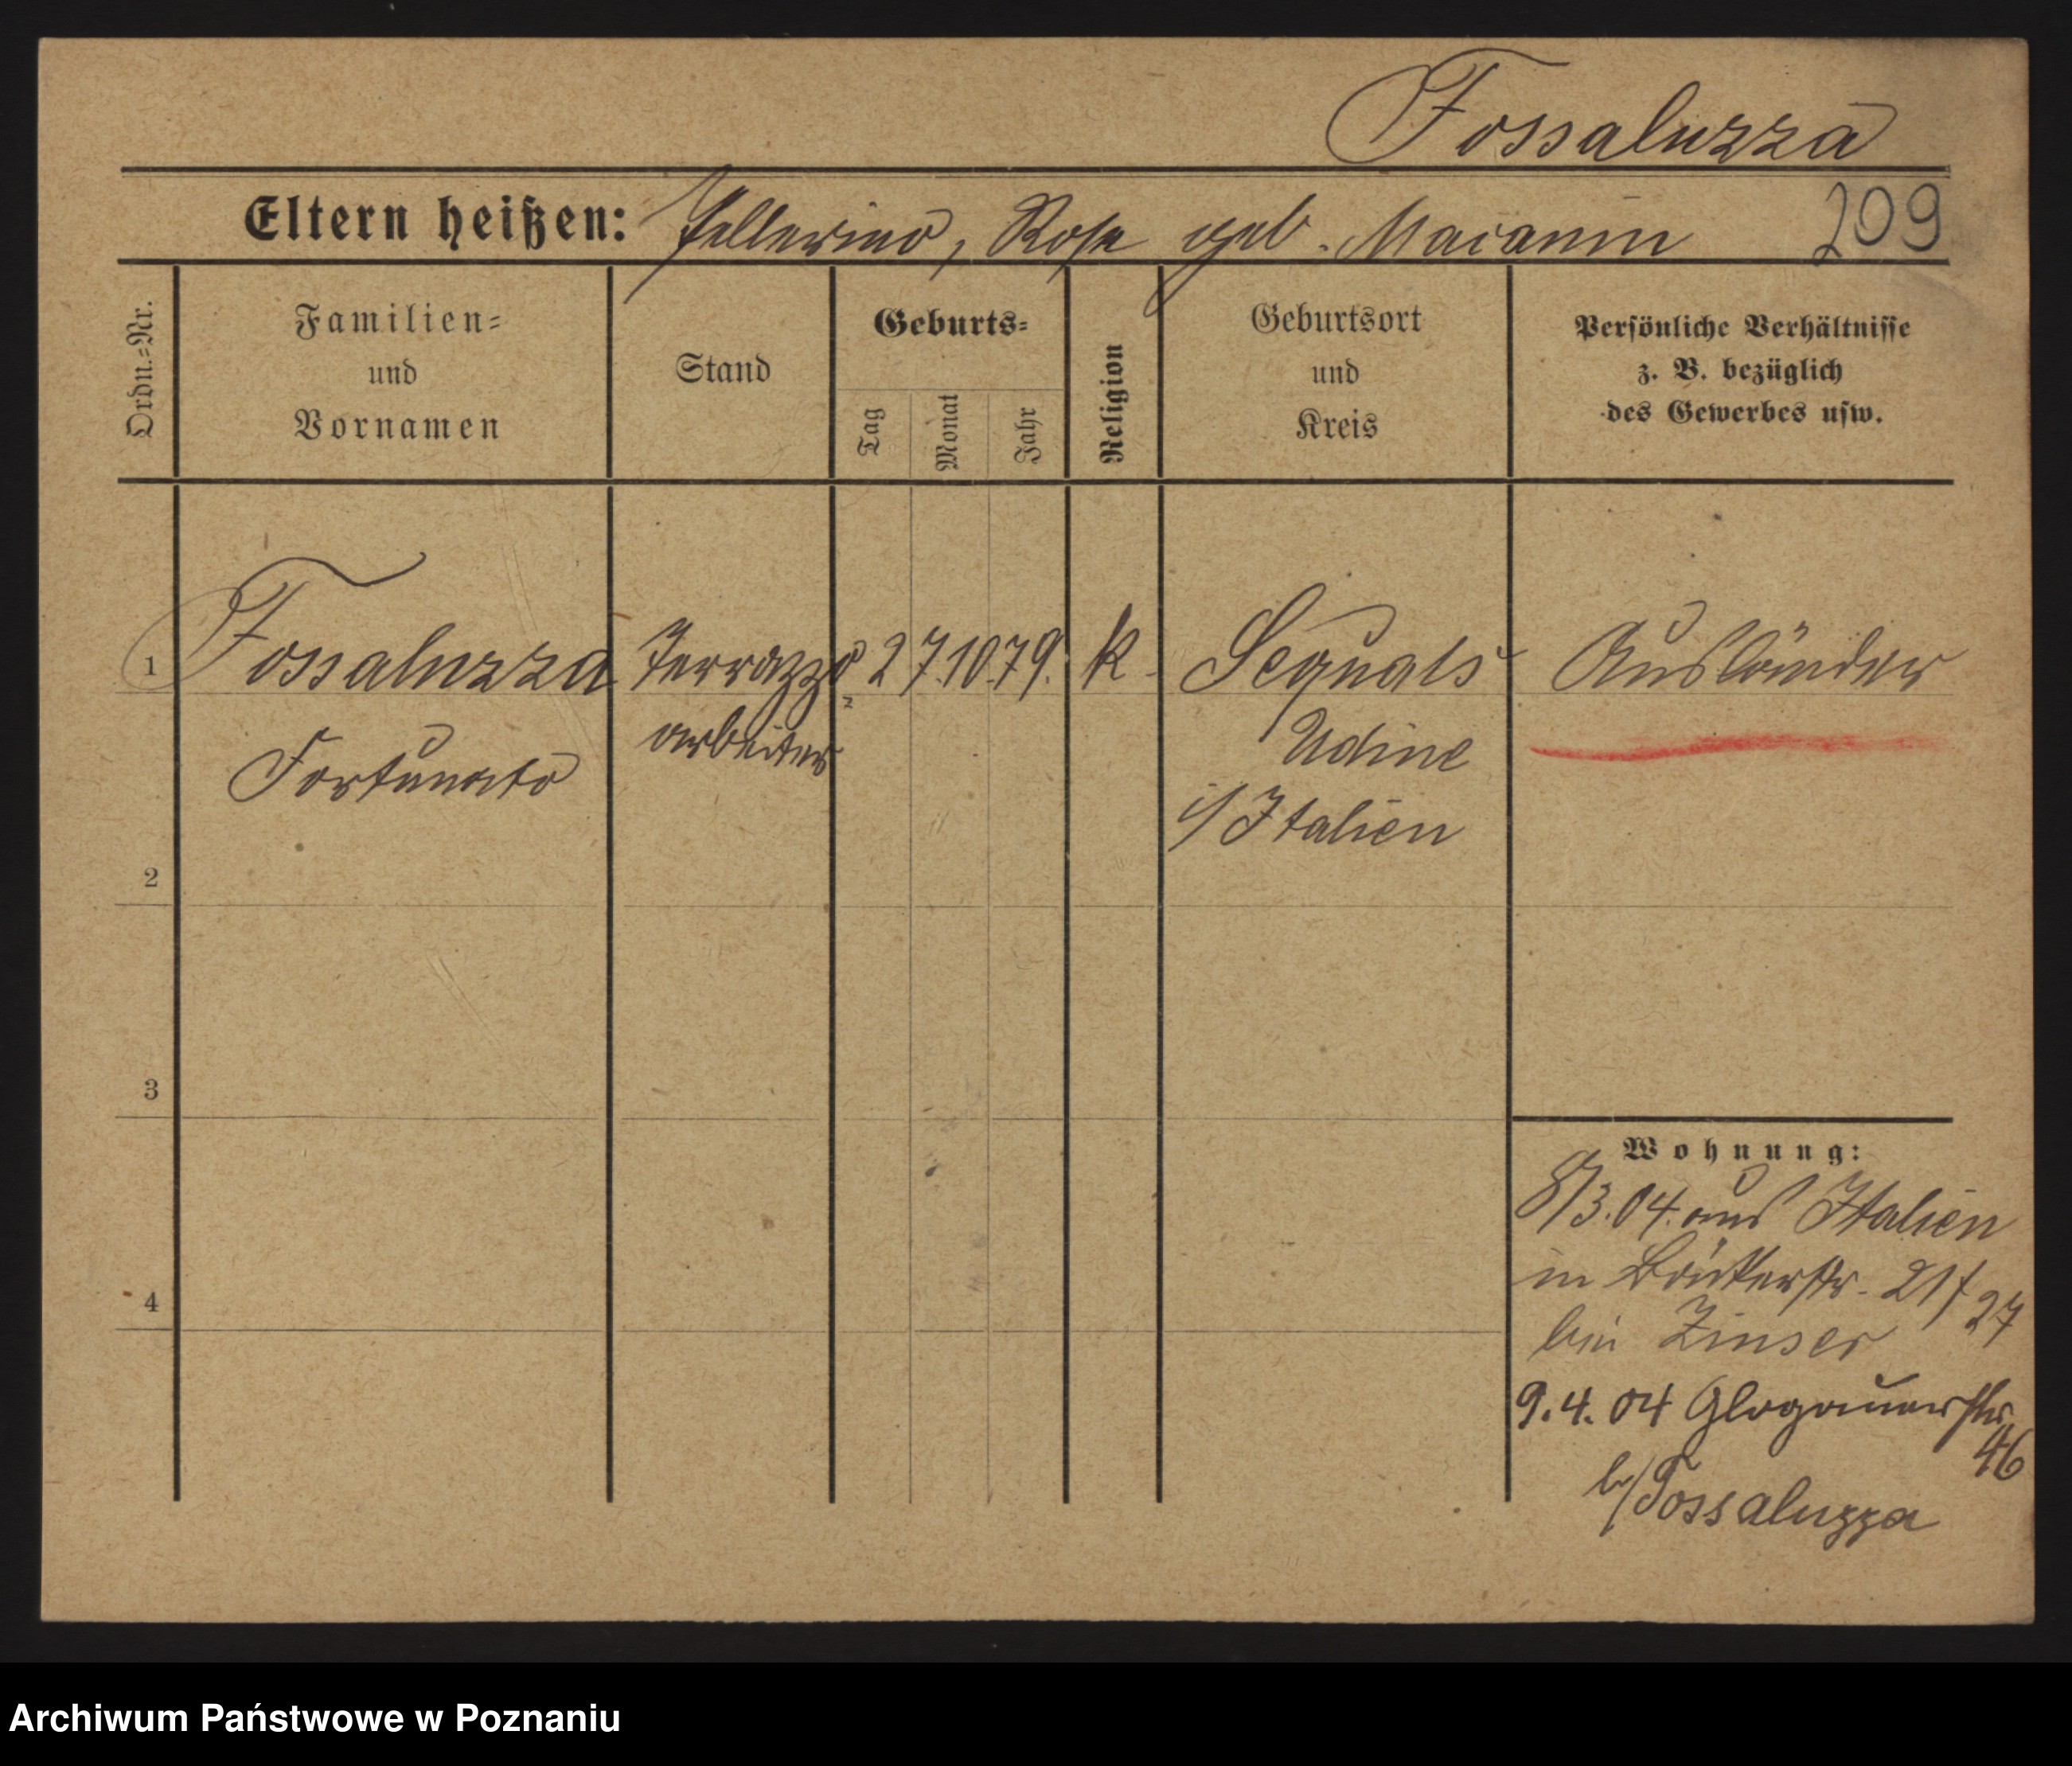 Fossaluzza
Eltern heißen: Pellerino, Rosa geb. Maianin 209
Ordn.-Nr.
Familien- und Vornamen
Stand
Geburts-
Tag
Monat
Jahr
Religion
Geburtsort und Kreis
Persönliche Verhältnisse z. B. bezüglich des Gewerbes usw.
1 Fossaluzza Terrazzo 27. 10. 79. k. Sequals Ausländer
Fortunato arbeiter Udine
i/Italien
2
3
4
Wohnung:
8/3.04. aus Italien
in 21/27
bei Zinser
9.4.04 Glogauerstr.
46
b/Fossaluzza
Archiwum Państwowe w Poznaniu